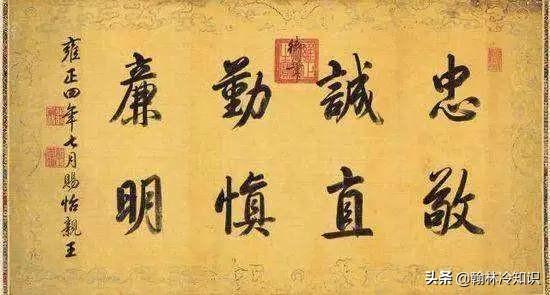 忠敬
誠直
勤慎
廉明
雍正四年七月賜怡親王
头条 @翰林冷知识